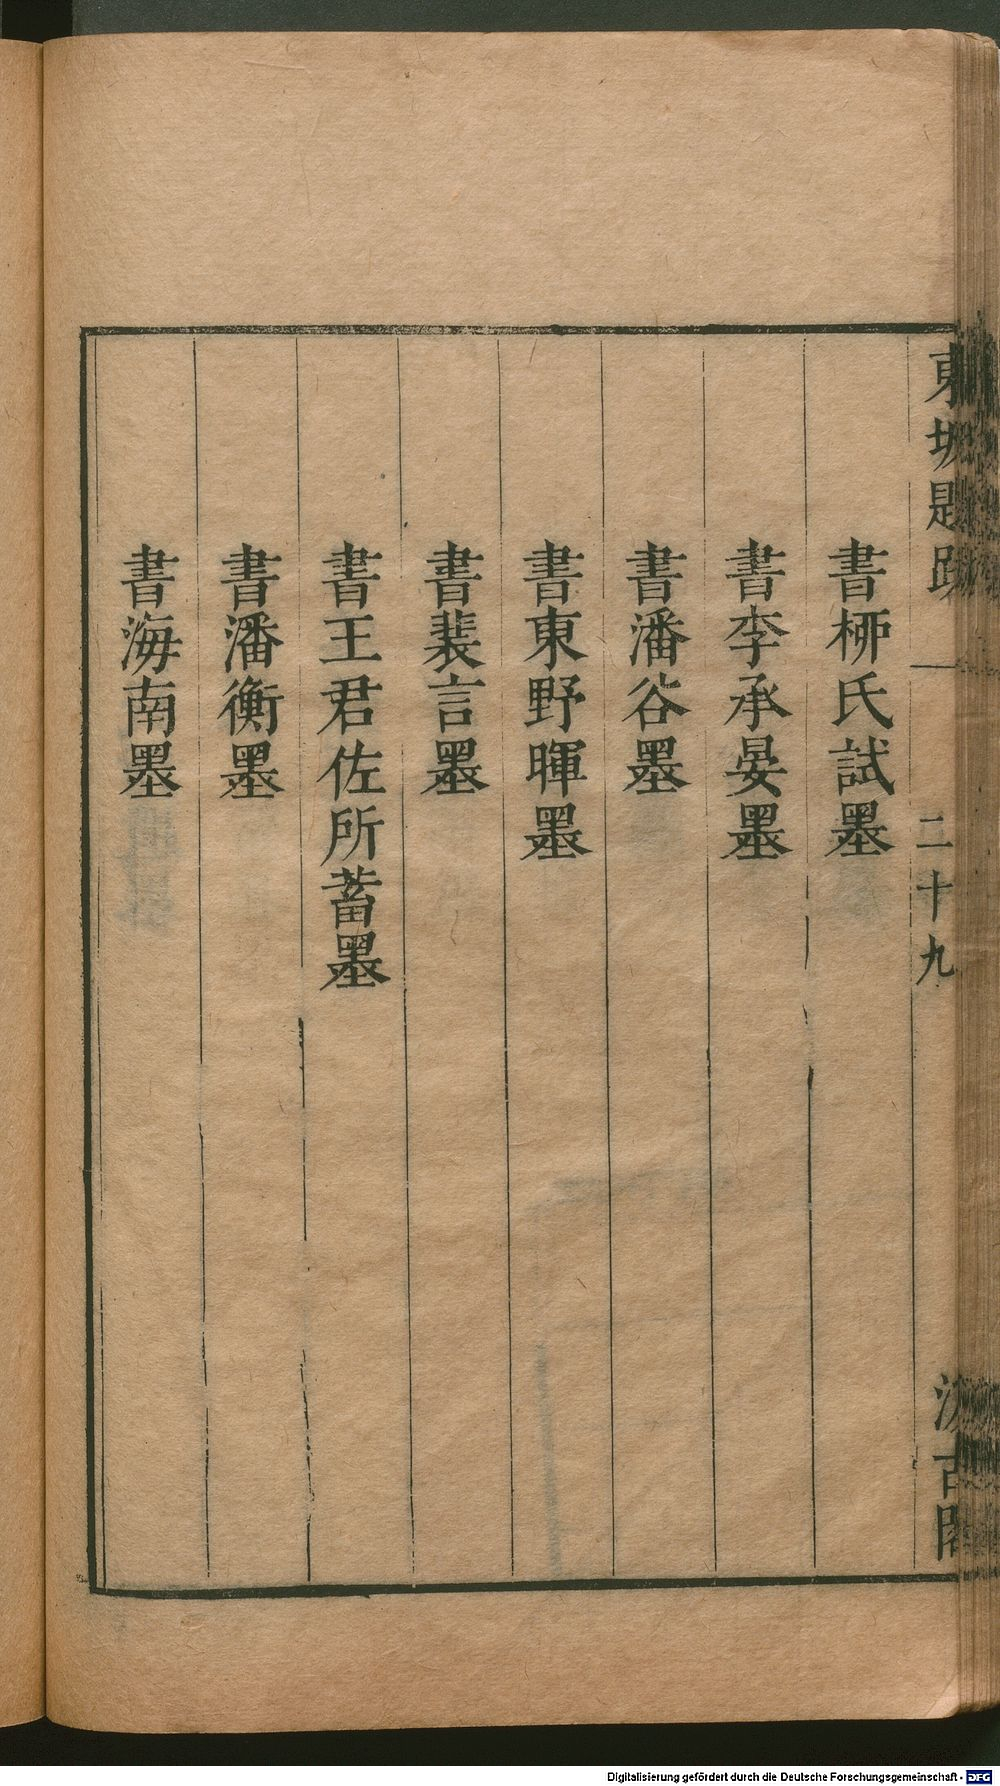 東坡題跋 二十九 汲古閣
書栁氏試墨
書李承晏墨
書潘谷墨
書東野暉墨
書裴言墨
書王君佐所蓄墨
書潘衡墨
書海南墨
Digitalisierung gefördert durch die Deutsche Forschungsgemeinschaft - DFG